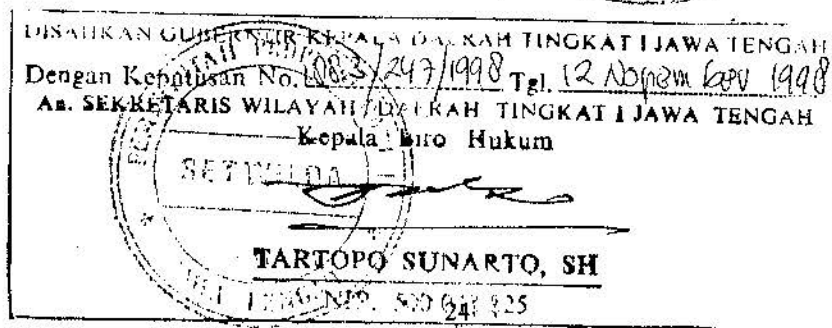 DISAHKAN GUBERNUR KEPALA DAERAH TINGKAT I JAWA TENGAH
Dengan Keputusan No. 188.3/247/1998 Tgl. 12 Nopember 1998
An. SEKRETARIS WILAYAH / DAERAH TINGKAT I JAWA TENGAH
Kepala Biro Hukum
SETWILDA
TARTOPO SUNARTO, SH
NIP. 500
24